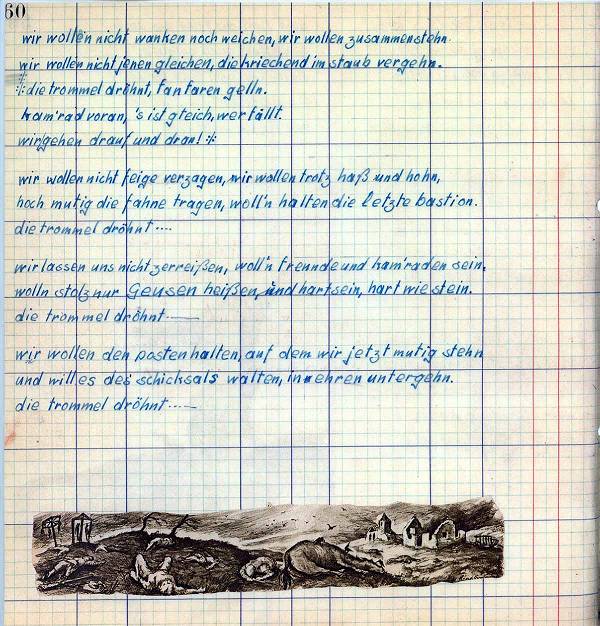 60
wir wollen nicht wanken noch weichen, wir wollen zusammenstehn
wir wollen nicht jenen gleichen, die kriechend im staub vergehn.
:die trommel dröhnt, fanfaren gelln.
kam'rad voran, 's ist gleich, wer fällt.
wir gehen drauf und dran! :
wir wollen nicht feige verzagen, wir wollen trotz haß und hohn,
hoch mutig die fahne tragen, woll'n halten die letzte bastion.
die trommel dröhnt....
wir lassen uns nicht zerreißen, woll'n freunde und kam'raden sein,
wolln stolz nur Geusen heißen, und hart sein, hart wie stein.
die trommel dröhnt......
wir wollen den posten halten, auf dem wir jetzt mutig stehn
und will es des schicksals walten, in ehren untergehn.
die trommel dröhnt......